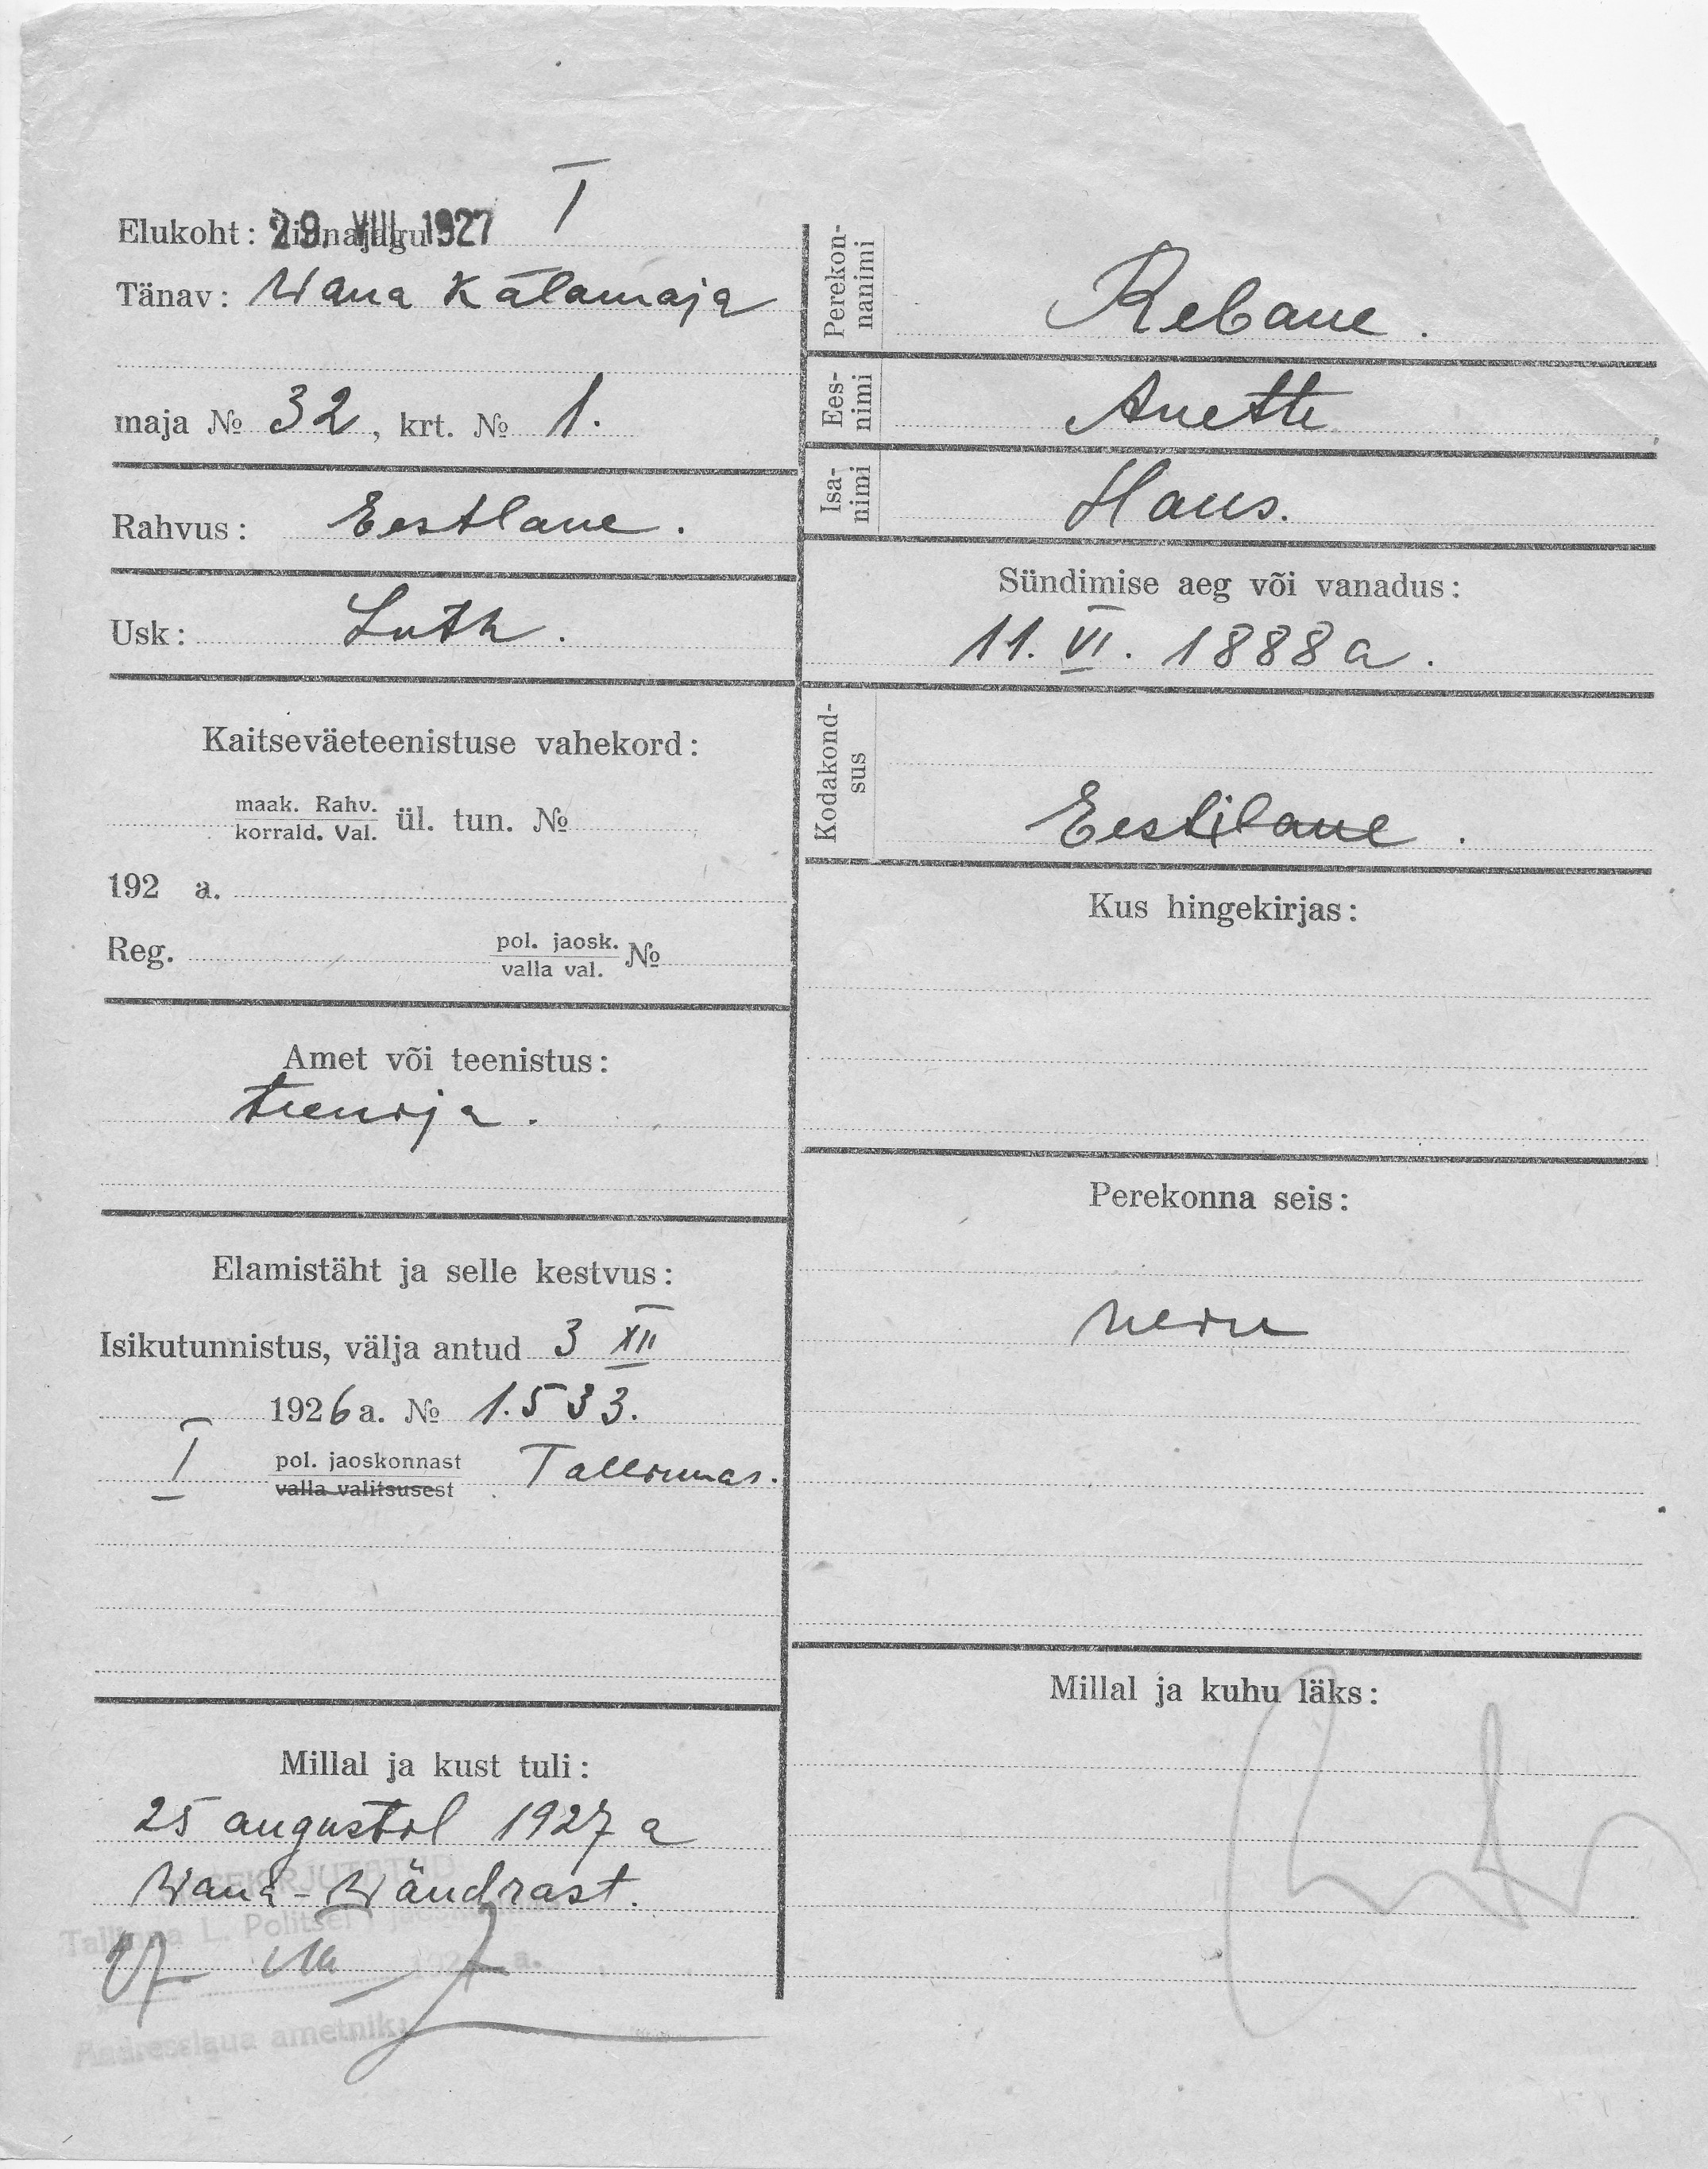 I
Elukoht: 29. VIII 1927
Tänav: Wana Kalamaja
maja № 32, krt. № 1.
Rahvus: Eestlane.
Usk: Luth.
Kaitseväeteenistuse vahekord:
maak. Rahv.
korrald. Val. ül. tun. №
192 a.
Reg. pol. jaosk.
valla val. №
Amet või teenistus:
teenija.
Elamistäht ja selle kestvus:
Isikutunnistus, välja antud 3 XII
1926 a. № 1.533.
I pol. jaoskonnast Tallinnas.
valla valitsusest
Millal ja kust tuli:
25 augustil 1927 a
Wana-Wändrast.
Tallinna L. Politsei
a.
Aadresslaua ametnik:
Perekon-
nanimi
Rebane.
Ees-
nimi
Anette
Isa-
nimi
Hans.
Sündimise aeg või vanadus:
11. VI. 1888 a.
Kodakond-
sus
Eestilane.
Kus hingekirjas:
Perekonna seis:
neiu
Millal ja kuhu läks: